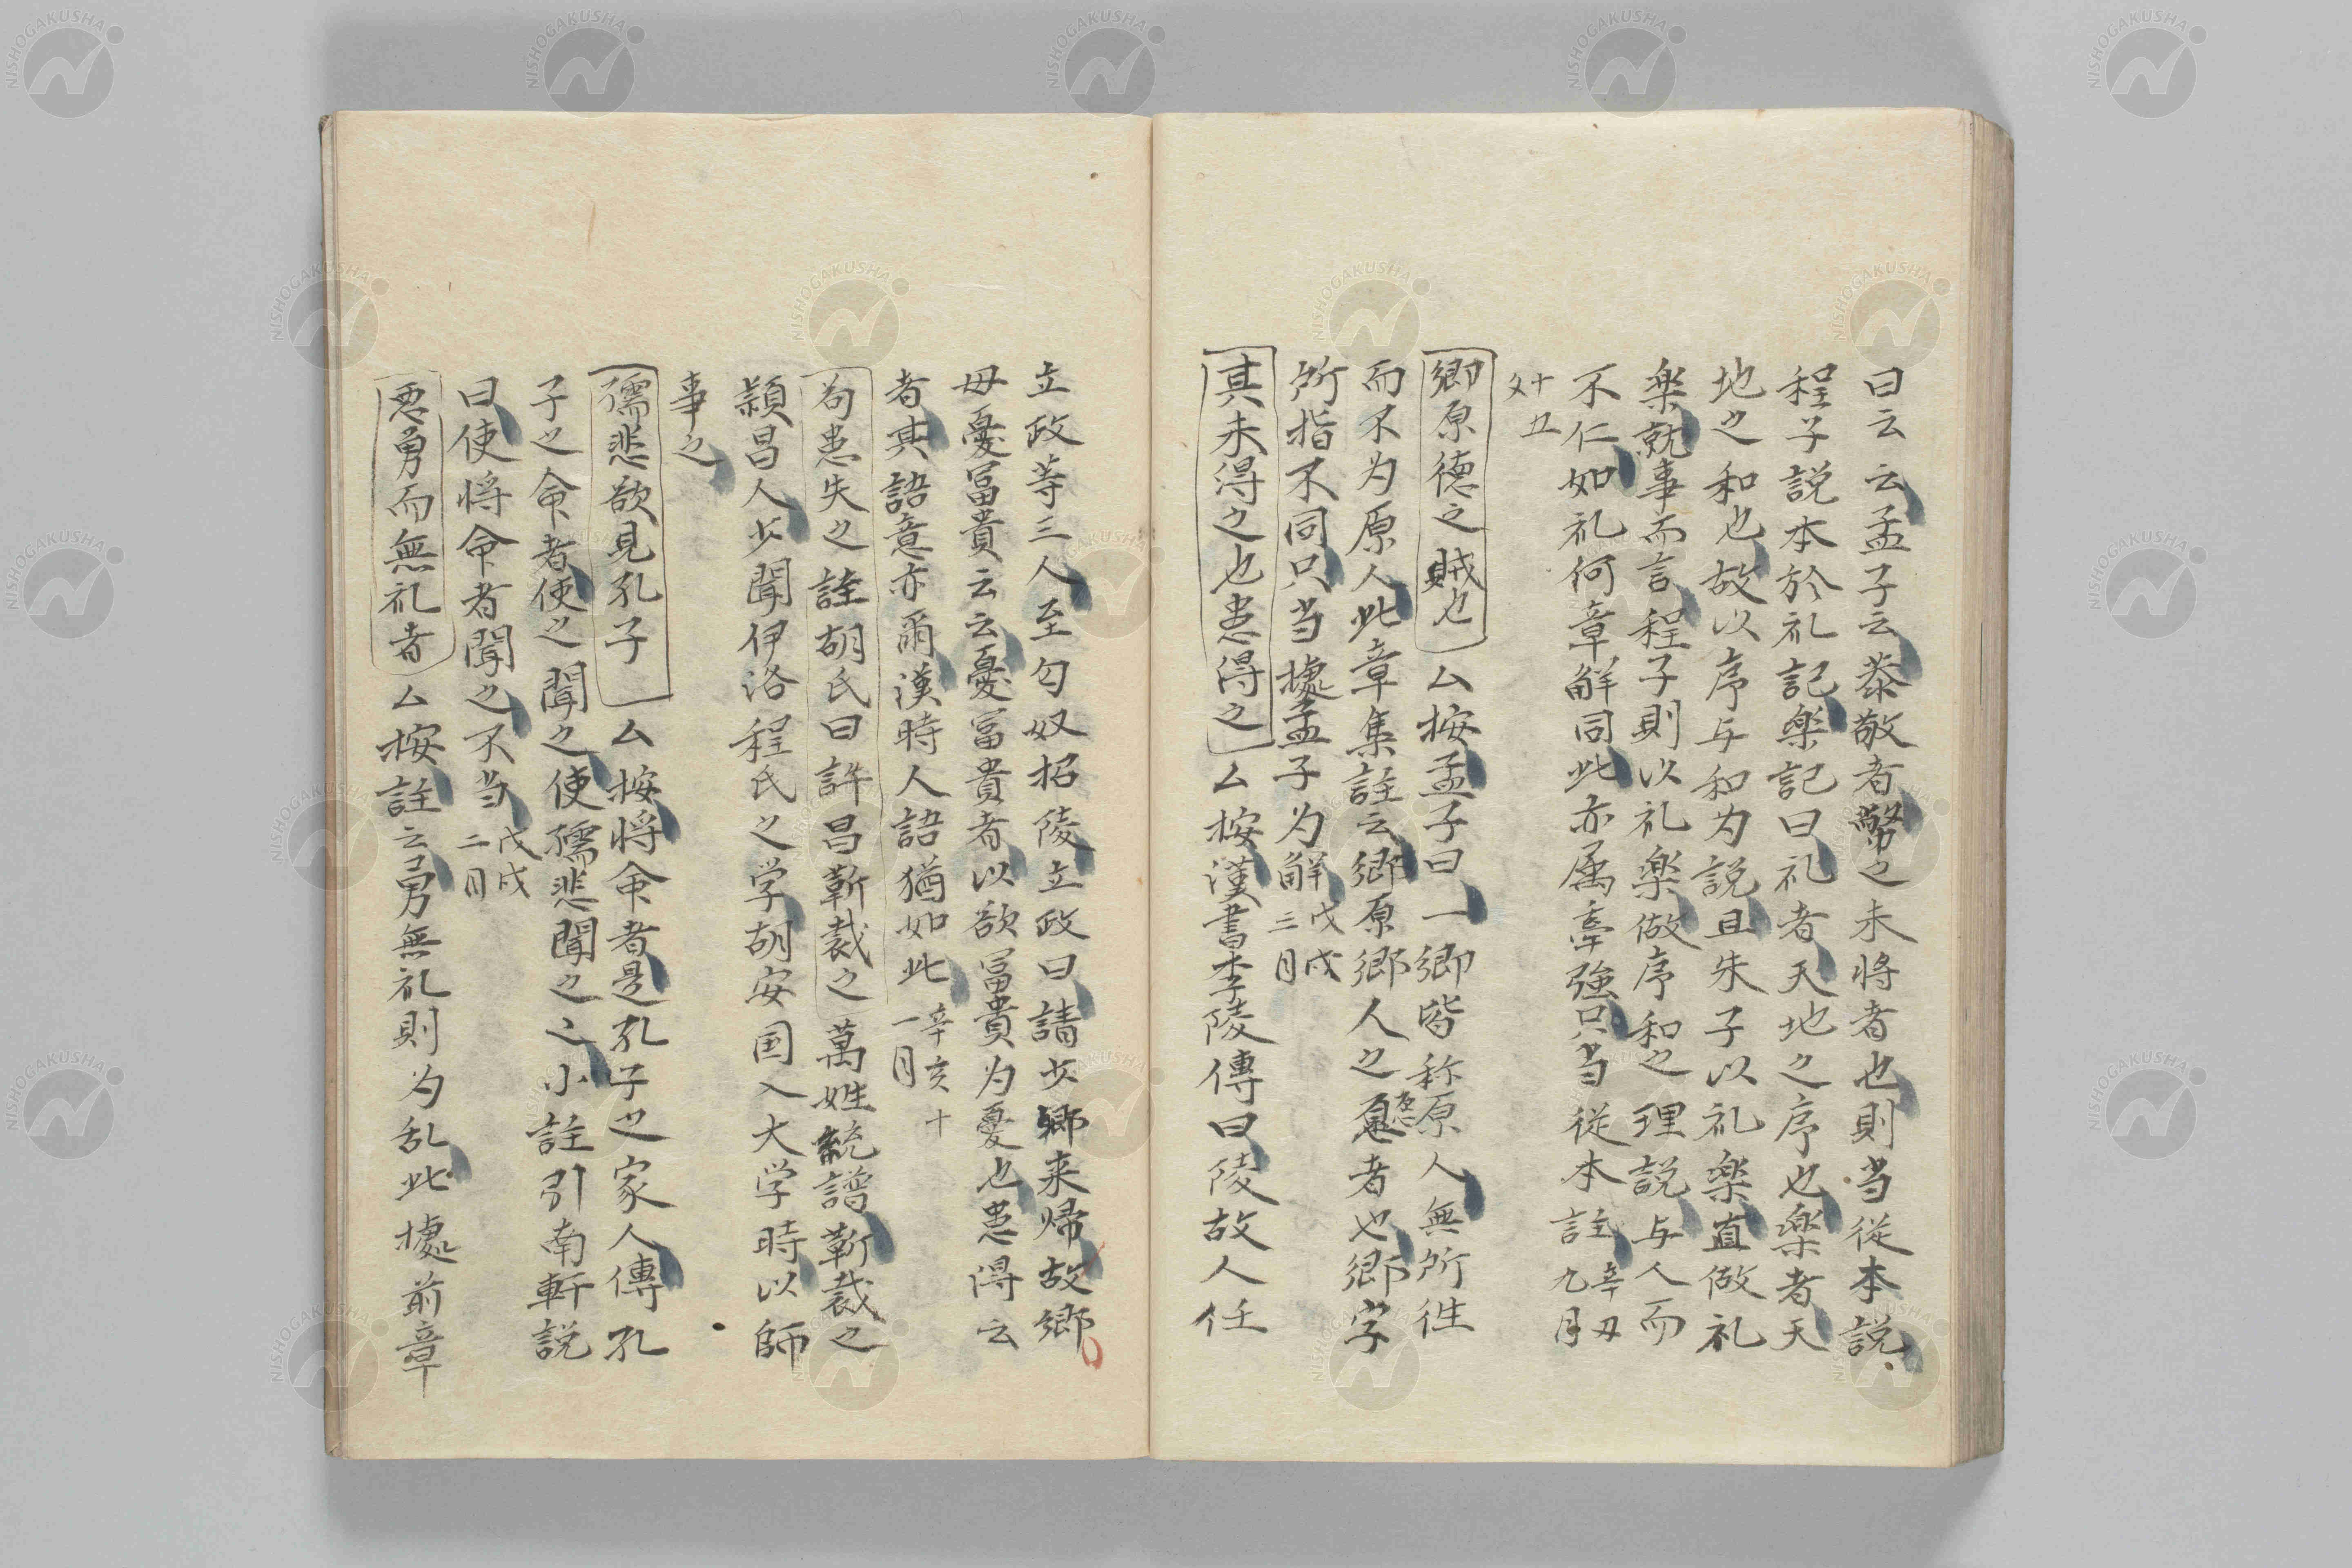 曰云云孟子云恭敬者幣之未将者也則当従本説
程子説本於礼記楽記曰礼者天地之序也楽者天
地之和也故以序与和为説且朱子以礼楽直做礼
楽就事而言程子則以礼楽做序和之理説与人而
不仁如礼何章觧同此亦属牽強只当従本註辛丑九月
十五夕
郷原徳之賊也 厶按孟子曰一郷皆称原人無所徃
而不为原人此章集註云郷原郷人之愿者也郷字
所指不同只当據孟子为觧戊戌三月
其未得之也患得之 厶按漢書李陵傳曰陵故人任
立政等三人至匈奴招陵立政曰請少卿来帰故郷
毋憂冨貴云云憂冨貴者以欲冨貴为憂也患得云
者其語意亦爾漢時人語猶如此辛亥十一月
苟患失之註胡氏曰許昌靳裁之 萬姓統譜靳裁之
頴昌人少聞伊洛程氏之学胡安国入大学時以師
事之
孺悲欲見孔子 厶按将命者是孔子之家人傳孔
子之命者使之聞之使孺悲聞之之小註引南軒説
曰使将命者聞之不当戊戌二月
悪勇而無礼者 厶按註云勇無礼則为乱此據前章
NISHOGAKUSHA